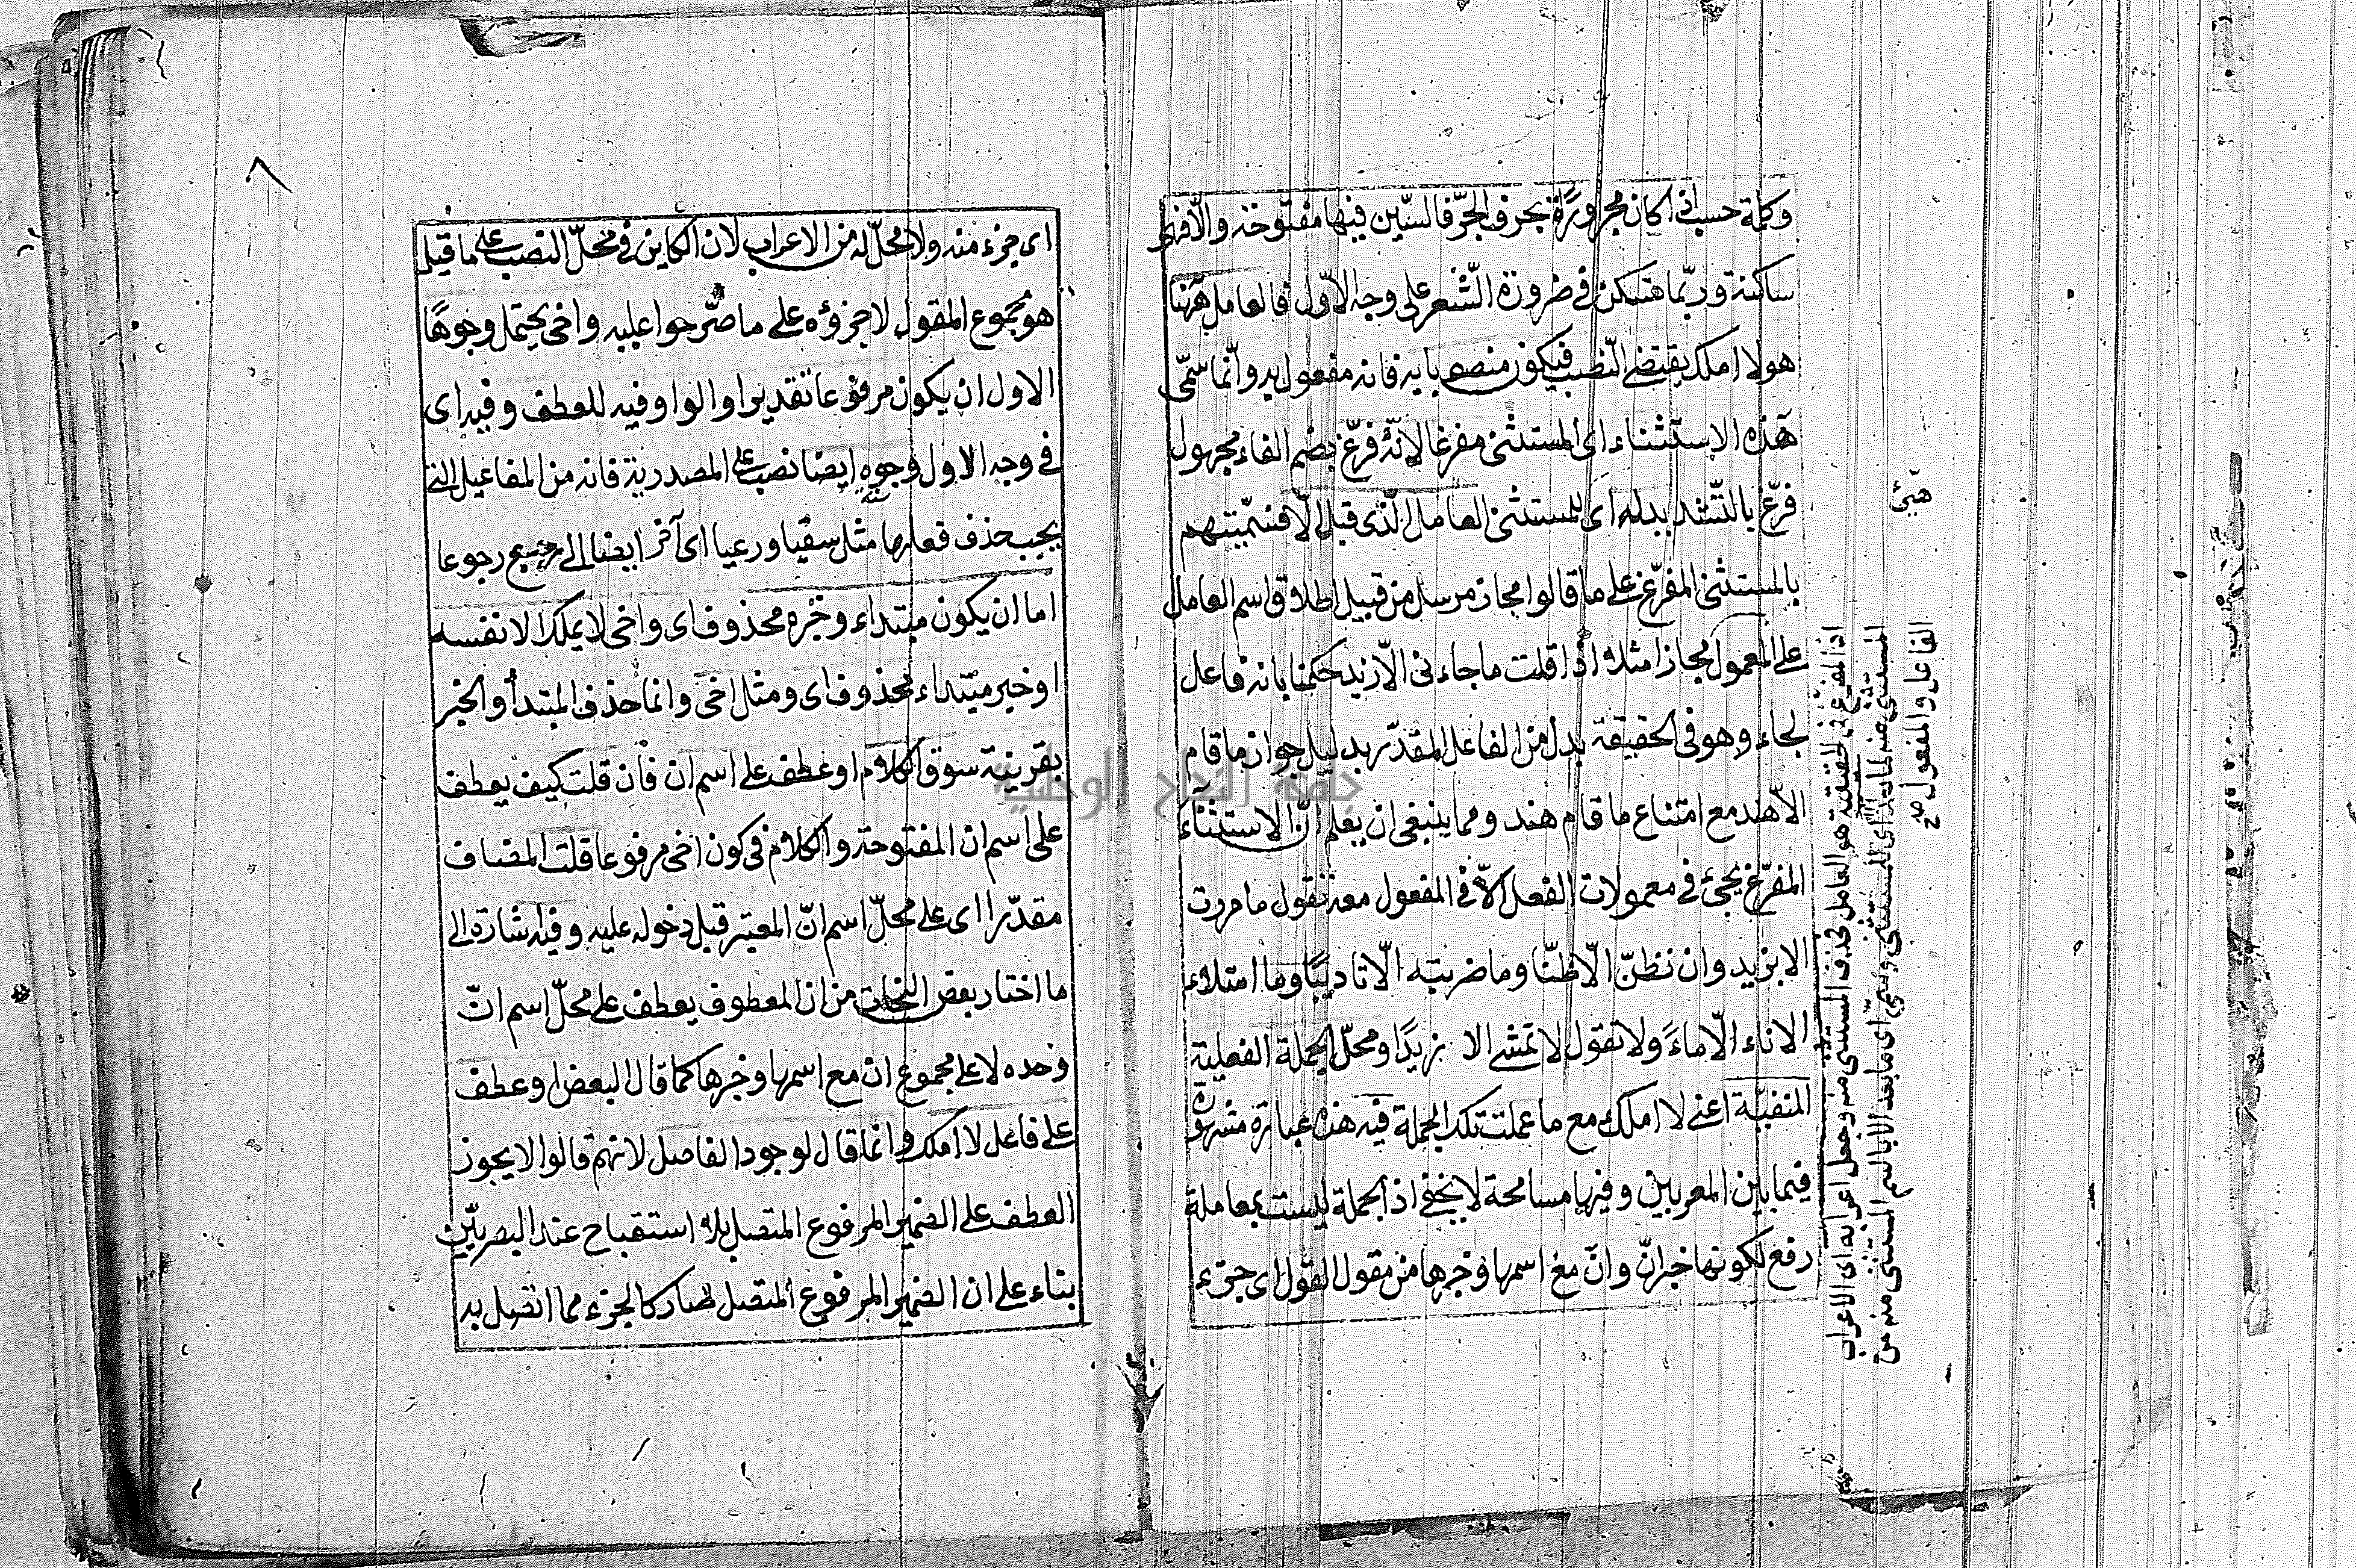 وكلمة حسب ان كان مجرورة بحرف الجرّ فالسّين فيها مفتوحة والّا فهى
ساكنة وربّما تسكن في ضرورة الشّعر على وجه الاوّل فالعامل ههنا
هو لا املك يقتضى النّصب فيكون منصوبا به فانه مفعول به وانّما سمّى
هذه الاستثناء اى المستثنى مفرغا لانّه فرّغ بضم الفاء مجهول
فرّغ بالتّشديد له اى للمستثنى العامل الّذى قبل الّا فتسميتهم
بالمستثنى المفرّغ على ما قالوا مجاز مرسل من قبيل اطلاق اسم العامل
على المعمول مجازا مثلا اذا قلت ما جاءنى الّا زيد حكمنا بانه فاعل
لجاء وهو فى الحقيقة بدل من الفاعل المقدّر بدليل جواز ما قام
الّا هند مع امتناع ما قام هند ومما ينبغى ان يعلم انّ الاستثناء
المفرّغ يجئ في معمولات الفعل الّا فى المفعول معه تقول ما مررت
الا بزيد وان نظنّ الّا ظنّا وما ضربته الّا تاديبًا وما امتلاء
الاناء الّا ماءً ولا تقول لا تمشى الا و زيدًا ومحلّ الجملة الفعلية
المنفيّة اعنى لا املك مع ما عملت تلك الجملة فيه هذه عبارة مشهورة
فيما بين المعربين وفيها مسامحة لا يخفى اذ الجملة ليست بعاملة
رفع لكونها خبر انّ وانّ مع اسمها وخبرها من مقول القول اى جزء
هيتى
اذ المفرّغ فى الحقيقة هو العامل فحذف المستثنى منه وجعل اعرابه اى الاعراب
المستثنى منه لما بعد اى للمستثنى وسمّى اى ما بعد الا باسم المستثنى منه من
الفاعل والمفعول صح
٨
اى جزء منه ولا محلّ له من الاعراب لان الكاين فى محلّ النصب على ما قيل
هو مجموع المقول لا جزؤه على ما صرّحوا عليه واخى يحتمل وجوهًا
الاول ان يكون مرفوعا تقديرا والواو فيه للعطف وفيه اى
فى وجه الاول وجوه ايضا نصب على المصدرية فانه من المفاعيل التى
يجب حذف فعلها مثل سقيا ورعيا اى آخر ايضا الى رجع رجوعا
اما ان يكون مبتداء وخبره محذوف اى واخى لا يملك الا نفسه
او خبر مبتداء محذوف اى ومثل اخى وانما حذف المبتدأ والخبر
بقرينة سوق الكلام او عطف على اسم ان فأن قلت كيف يعطف
على اسم ان المفتوحة والكلام فى كون اخى مرفوعا قلت المضاف
مقدّرا اى على محلّ اسم انّ المعتبر قبل دخوله عليه وفيه اشارة الى
ما اختار بعض النحات من ان المعطوف يعطف على محلّ اسم انّ
وحده لا على مجموع ان مع اسمها وخبرها كما قال البعض او عطف
على فاعل لا املك وانما قال لوجود الفاصل لانهم قالوا لا يجوز
العطف على الضمير المرفوع المتصل بلا استقباح عند البصريّين
بناء على ان الضمير المرفوع المتصل لصار كالجزء مما اتصل به
جامعة النجاح الوطنية